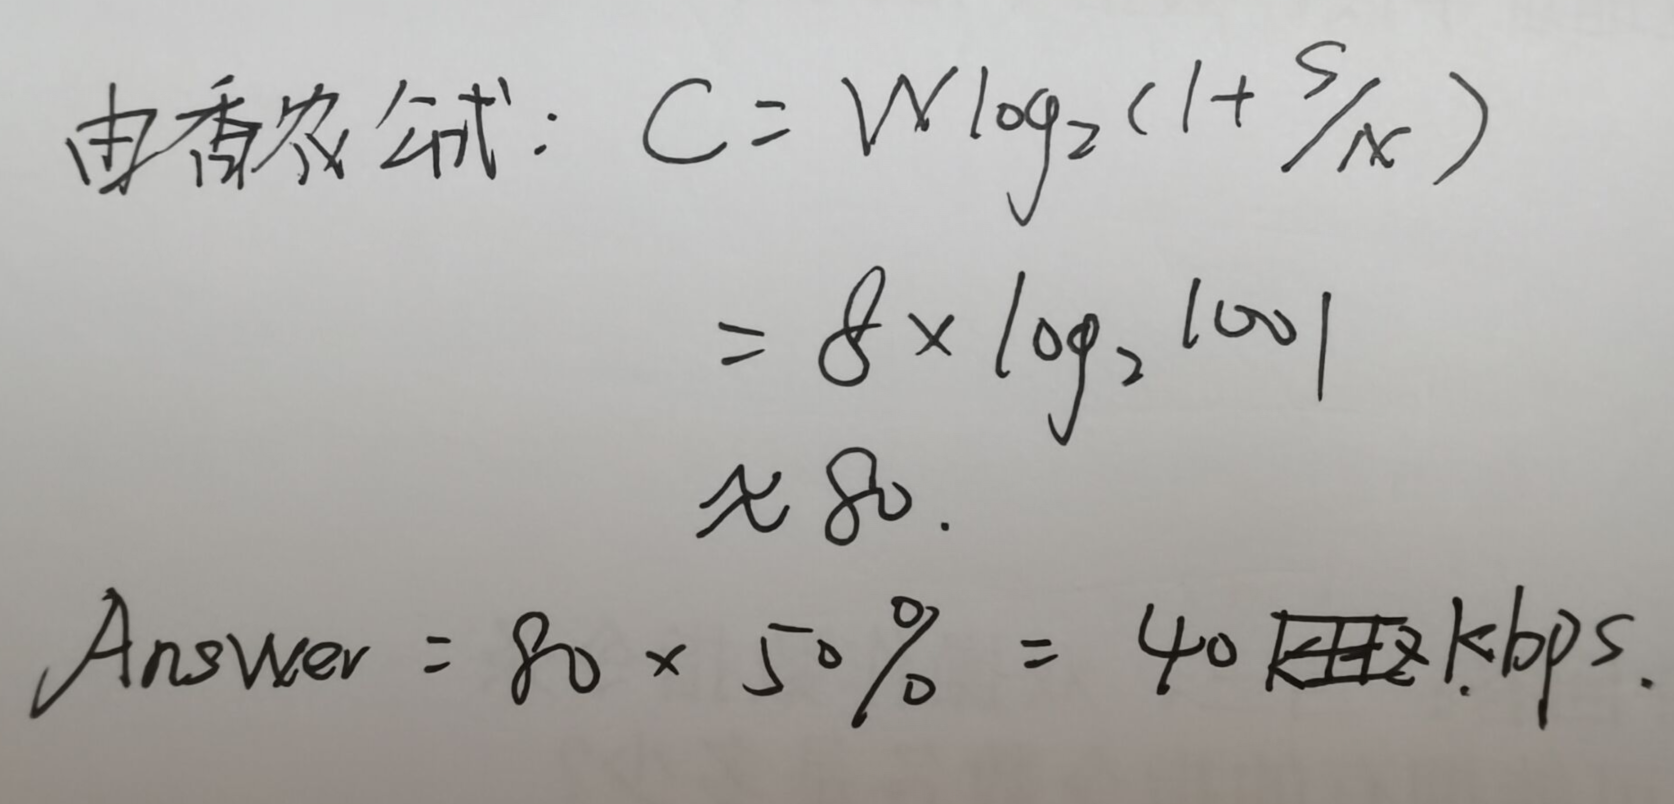 由香农公式: C = W log₂ (1 + S/N)
= 8 × log₂ 1001
≈ 80.
Answer = 80 × 50% = 40 kbps.